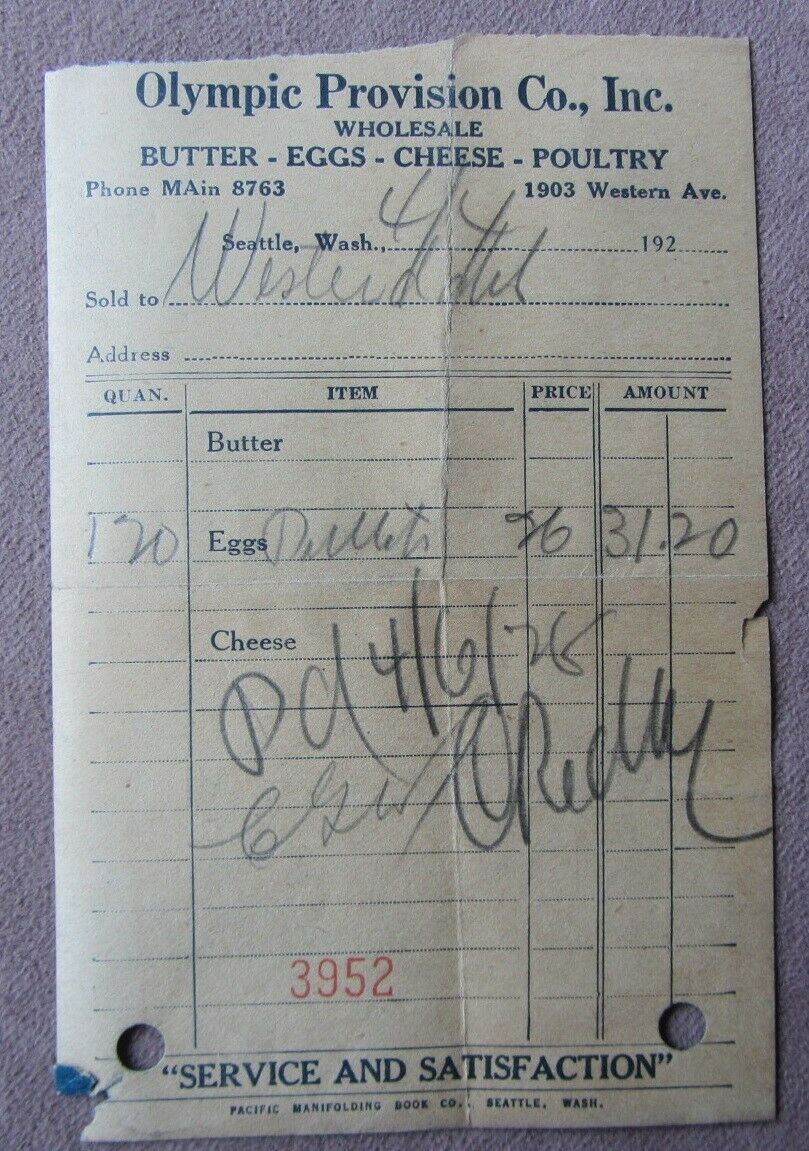 Olympic Provision Co., Inc.
WHOLESALE
BUTTER - EGGS - CHEESE - POULTRY
Phone MAin 8763 1903 Western Ave.
Seattle, Wash., 4/4 192
Sold to Western Hotel
Address
QUAN. ITEM PRICE AMOUNT
Butter
120 Eggs Pullets 26 31.20
Cheese
Pd 4/6/28
O'Reilly
3952
"SERVICE AND SATISFACTION"
PACIFIC MANIFOLDING BOOK CO., SEATTLE, WASH.